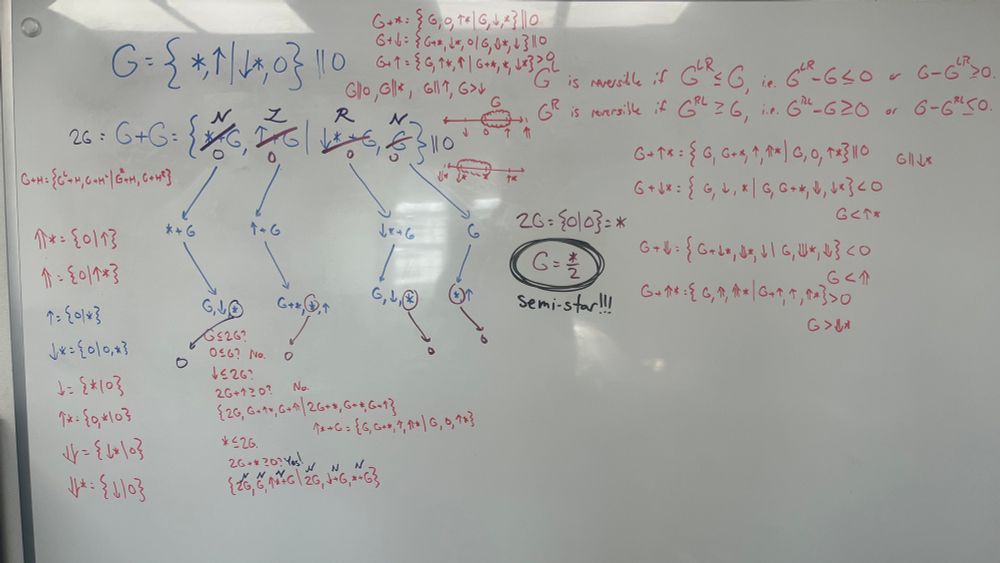 G = { *, ↑ | ↓*, 0 } || 0
G+* = { G, 0, ↑* | G, ↓, * } || 0
G+↓ = { G+*, ↓*, 0 | G, ⇓*, ↓ } || 0
G+↑ = { G, ↑*, ↑ | G+*, *, ↓* } > 0
G||0, G||*, G||↑, G>↓
G
↓ 0 ↑ ⇑
G is reversible if G^{LR} ≤ G, i.e. G^{LR} - G ≤ 0 or G - G^{LR} ≥ 0.
G^R is reversible if G^{RL} ≥ G, i.e. G^{RL} - G ≥ 0 or G - G^{RL} ≤ 0.
N Z R N
2G = G+G = { *+G, ↑+G | ↓*+G, G } || 0
0 0 0 0
G+H = { G^L+H, G+H^L | G^R+H, G+H^R }
*+G ↑+G ↓*+G G
G, ↓, * G+*, *, ↑ G, ↓, * *, ↑
0 0 0 0
⇑* = {0|↑}
⇑ = {0|↑*}
↑ = {0|*}
↓* = {0|0,*}
↓ = {*|0}
↑* = {0,*|0}
⇓ = {↓*|0}
⇓* = {↓|0}
G ≤ 2G?
0 ≤ G? No.
↓ ≤ 2G?
2G+↑ ≥ 0? No.
{ 2G, G+↑*, G+⇑ | 2G+*, G+*, G+↑ }
↑*+G = { G, G+*, ↑, ⇑* | G, 0, ↑* }
* ≤ 2G
2G+* ≥ 0? Yes!
N N N N N N
{ 2G, G, ↑*+G | 2G, ↓+G, *+G }
2G = {0|0} = *
G = */2
semi-star!!!
G+↑* = { G, G+*, ↑, ⇑* | G, 0, ↑* } || 0
G||↓*
G+↓* = { G, ↓, * | G, G+*, ⇓, ↓* } < 0
G < ↑*
G+⇓ = { G+↓*, ⇓*, ↓ | G, ⇓*, ⇓ } < 0
G < ⇑
G+⇑* = { G, ⇑, ⇑* | G+↑, ↑, ↑* } > 0
G > ⇓*